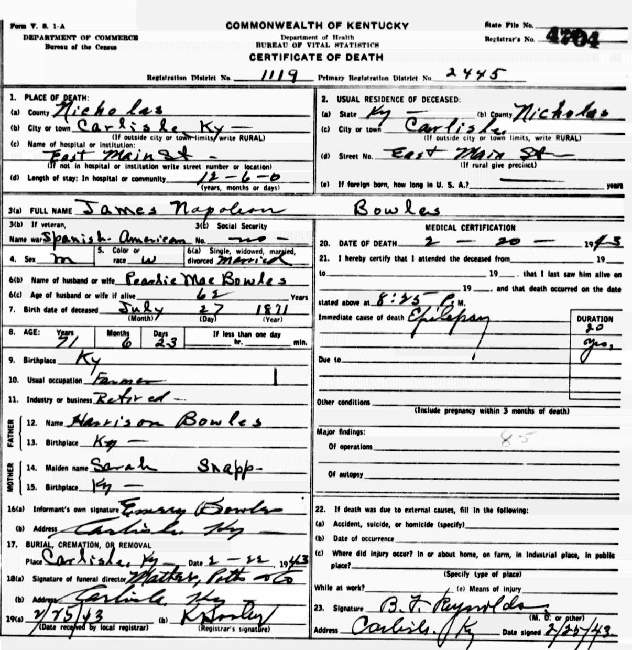 Form V. S. 1-A
DEPARTMENT OF COMMERCE
Bureau of the Census
COMMONWEALTH OF KENTUCKY
Department of Health
BUREAU OF VITAL STATISTICS
CERTIFICATE OF DEATH
State File No.
Registrar's No. 4704
Registration District No. 1119 Primary Registration District No. 2445
1. PLACE OF DEATH:
(a) County Nicholas
(b) City or town Carlisle Ky —
(If outside city or town limits, write RURAL)
(c) Name of hospital or institution:
East Main St —
(If not in hospital or institution write street number or location)
(d) Length of stay: In hospital or community 12-6-0
(years, months or days)
2. USUAL RESIDENCE OF DECEASED:
(a) State Ky — (b) County Nicholas
(c) City or town Carlisle
(If outside city or town limits, write RURAL)
(d) Street No. East Main St —
(If rural give precinct)
(e) If foreign born, how long in U. S. A.? years
3(a) FULL NAME James Napoleon Bowles
3(b) If veteran, 3(c) Social Security
Name war Spanish American No. — no —
4. Sex m 5. Color or race w 6(a) Single, widowed, married, divorced married
6(b) Name of husband or wife Pearlie Mae Bowles
6(c) Age of husband or wife if alive 62 Years
7. Birth date of deceased July 27 1871
(Month) (Day) (Year)
8. AGE: Years Months Days If less than one day
71 6 23 hr. min.
9. Birthplace Ky
10. Usual occupation Farmer
11. Industry or business Retired —
FATHER
12. Name Harrison Bowles
13. Birthplace Ky —
MOTHER
14. Maiden name Sarah Snapp —
15. Birthplace Ky —
16(a) Informant's own signature Emery Bowles
(b) Address Carlisle Ky —
17. BURIAL, CREMATION, OR REMOVAL
Place Carlisle, Ky — Date 2 - 22, 1943
18(a) Signature of funeral director Mather, Potts & Co
(b) Address Carlisle Ky —
19(a) 2/25/43 (b)
(Date received by local registrar) (Registrar's signature)
MEDICAL CERTIFICATION
20. DATE OF DEATH 2 — 20 — 1943
21. I hereby certify that I attended the deceased from 19
to 19 that I last saw him alive on
19 and that death occurred on the date
stated above at 8:25 P. M.
Immediate cause of death Epilepsy
DURATION
20
yrs,
Due to
Other conditions
(Include pregnancy within 3 months of death)
Major findings:
Of operations 85
Of autopsy
22. If death was due to external causes, fill in the following:
(a) Accident, suicide, or homicide (specify)
(b) Date of occurrence
(c) Where did injury occur? In or about home, on farm, in industrial place, in public
place?
(Specify type of place)
While at work? (e) Means of injury
23. Signature B. F. Reynolds
(M. D. or other)
Address Carlisle, Ky Date signed 2/25/43.